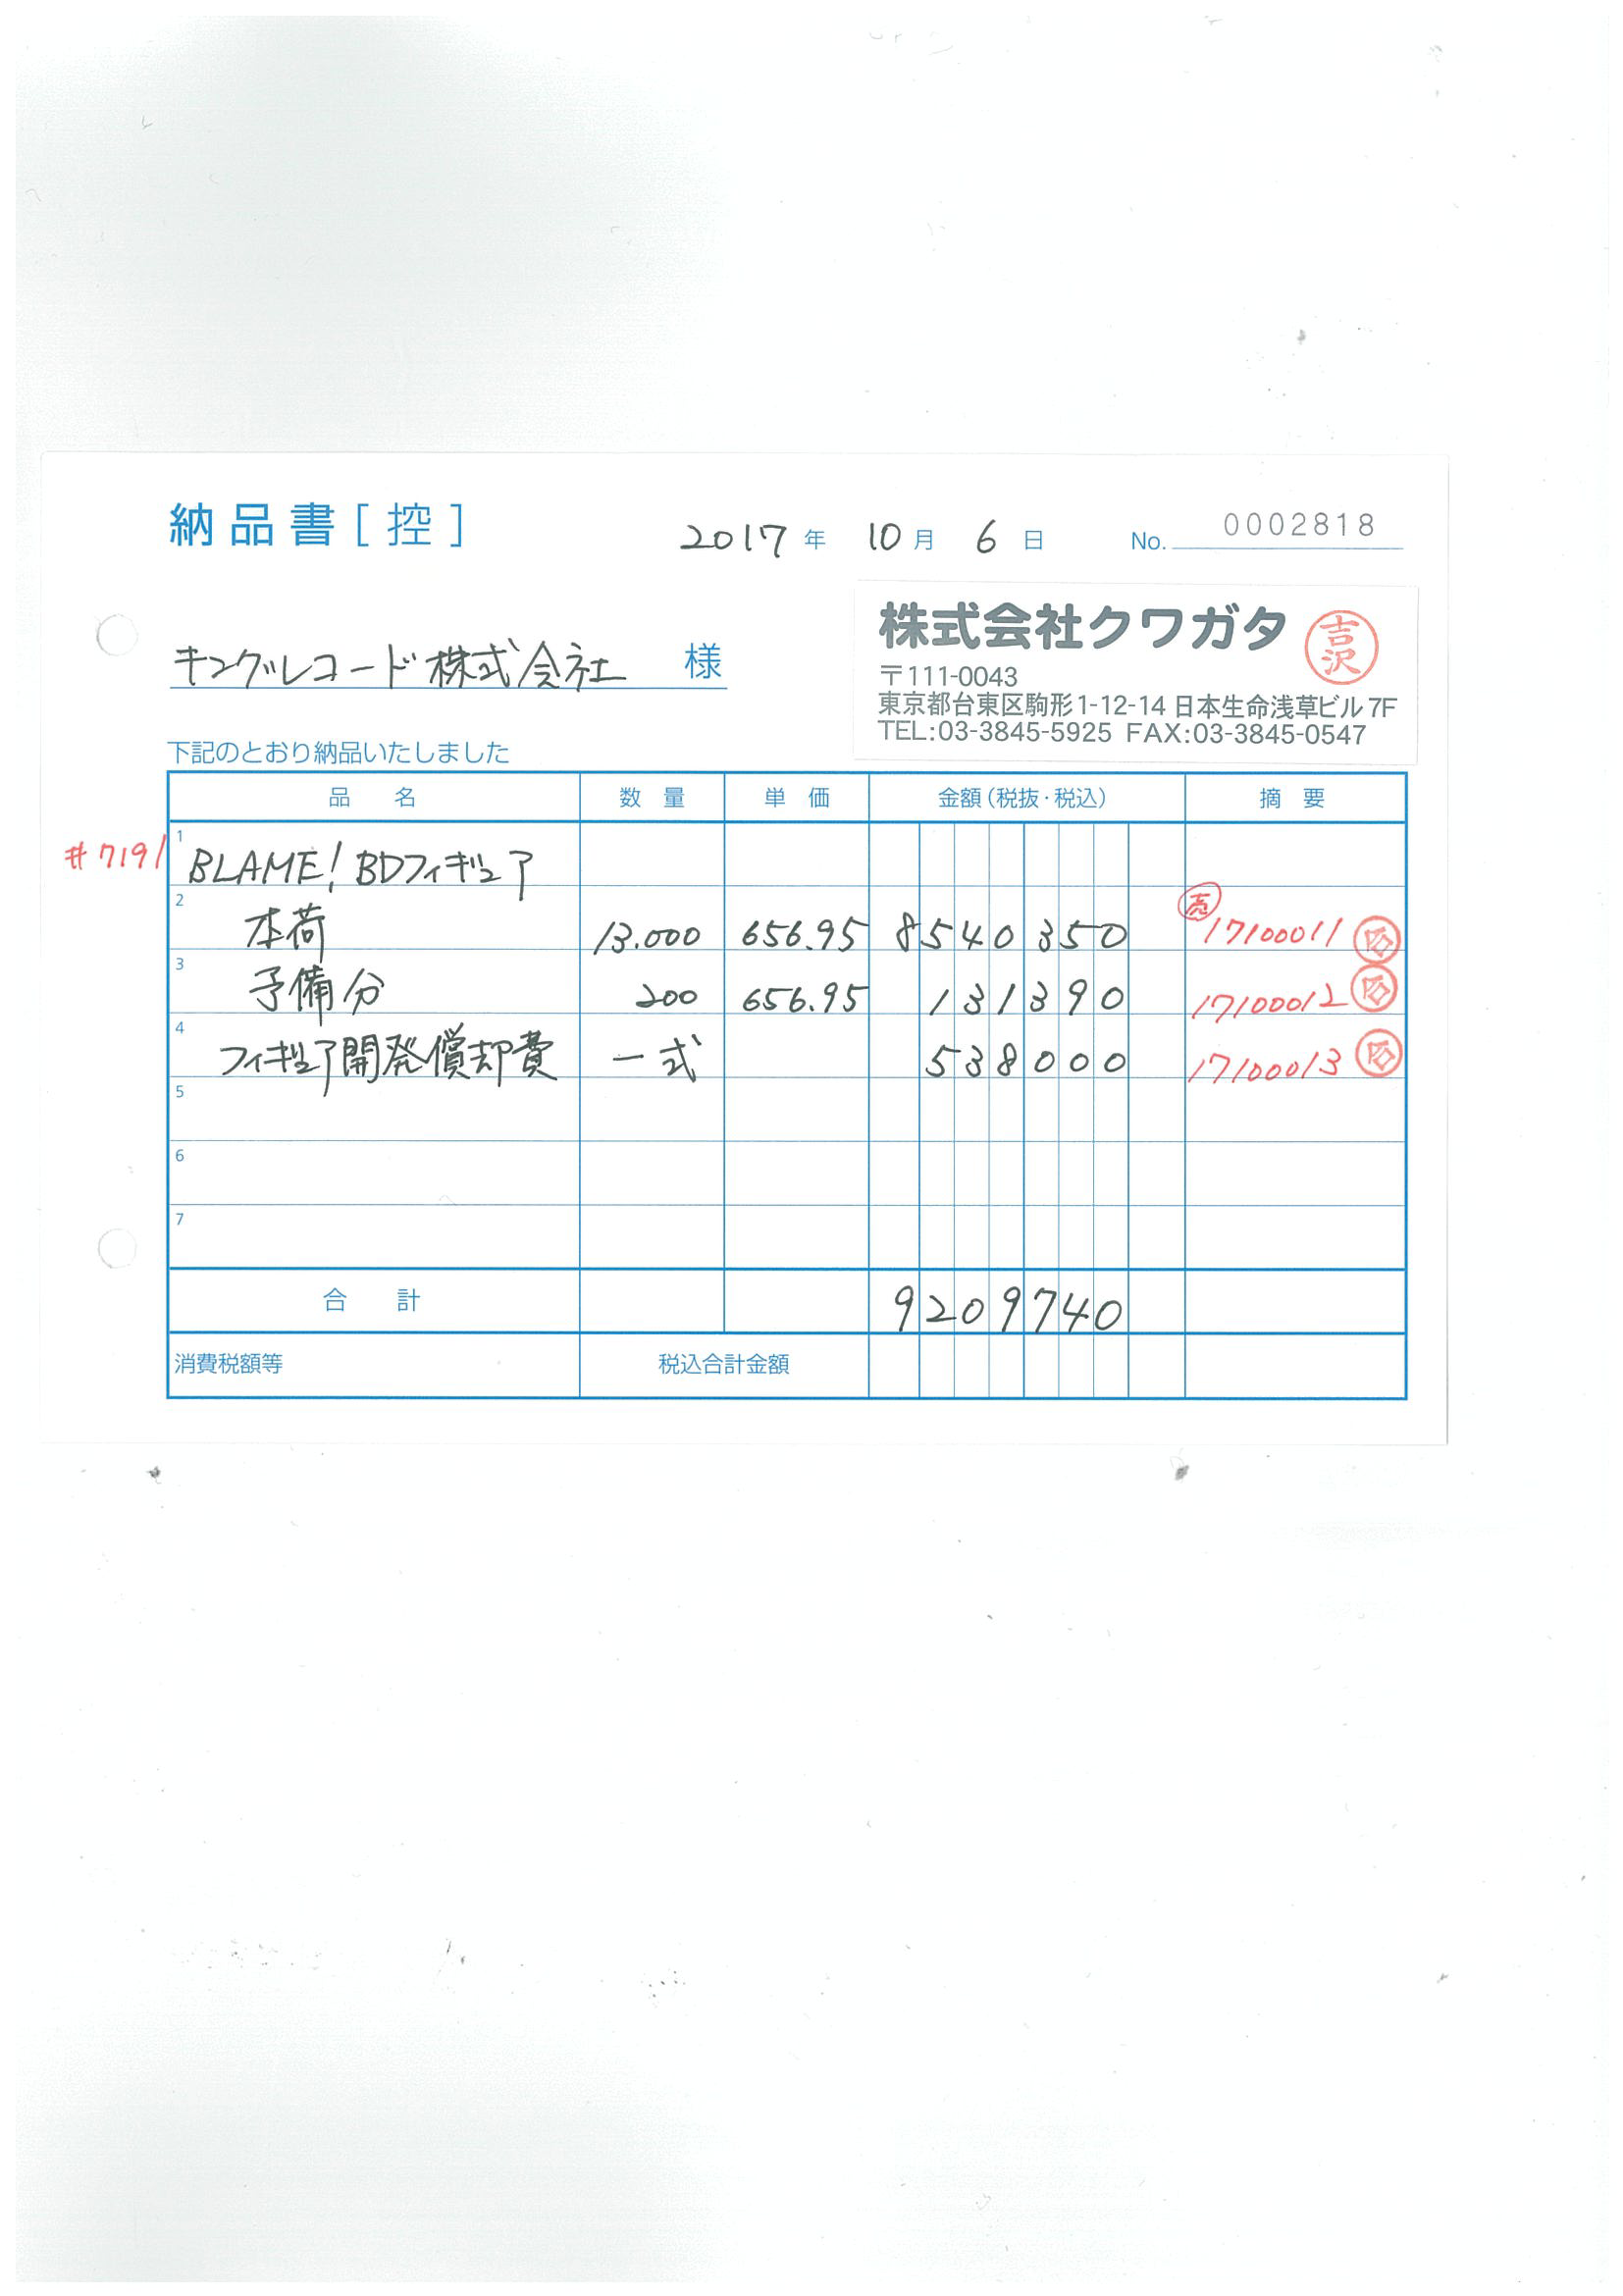 納品書[控] 2017年 10月 6日 No. 0002818
株式会社クワガタ 吉沢
〒111-0043
キングレコード株式会社 様
東京都台東区駒形1-12-14 日本生命浅草ビル7F
TEL:03-3845-5925 FAX:03-3845-0547
下記のとおり納品いたしました
品名 数量 単価 金額(税抜・税込) 摘要
#7191 1 BLAME! BDフィギュア
2 本荷 13.000 656.95 8540350 売 17100011
3 予備分 200 656.95 131390 17100012
4 フィギュア開発償却費 一式 538000 17100013
5
6
7
合計 9209740
消費税額等 税込合計金額